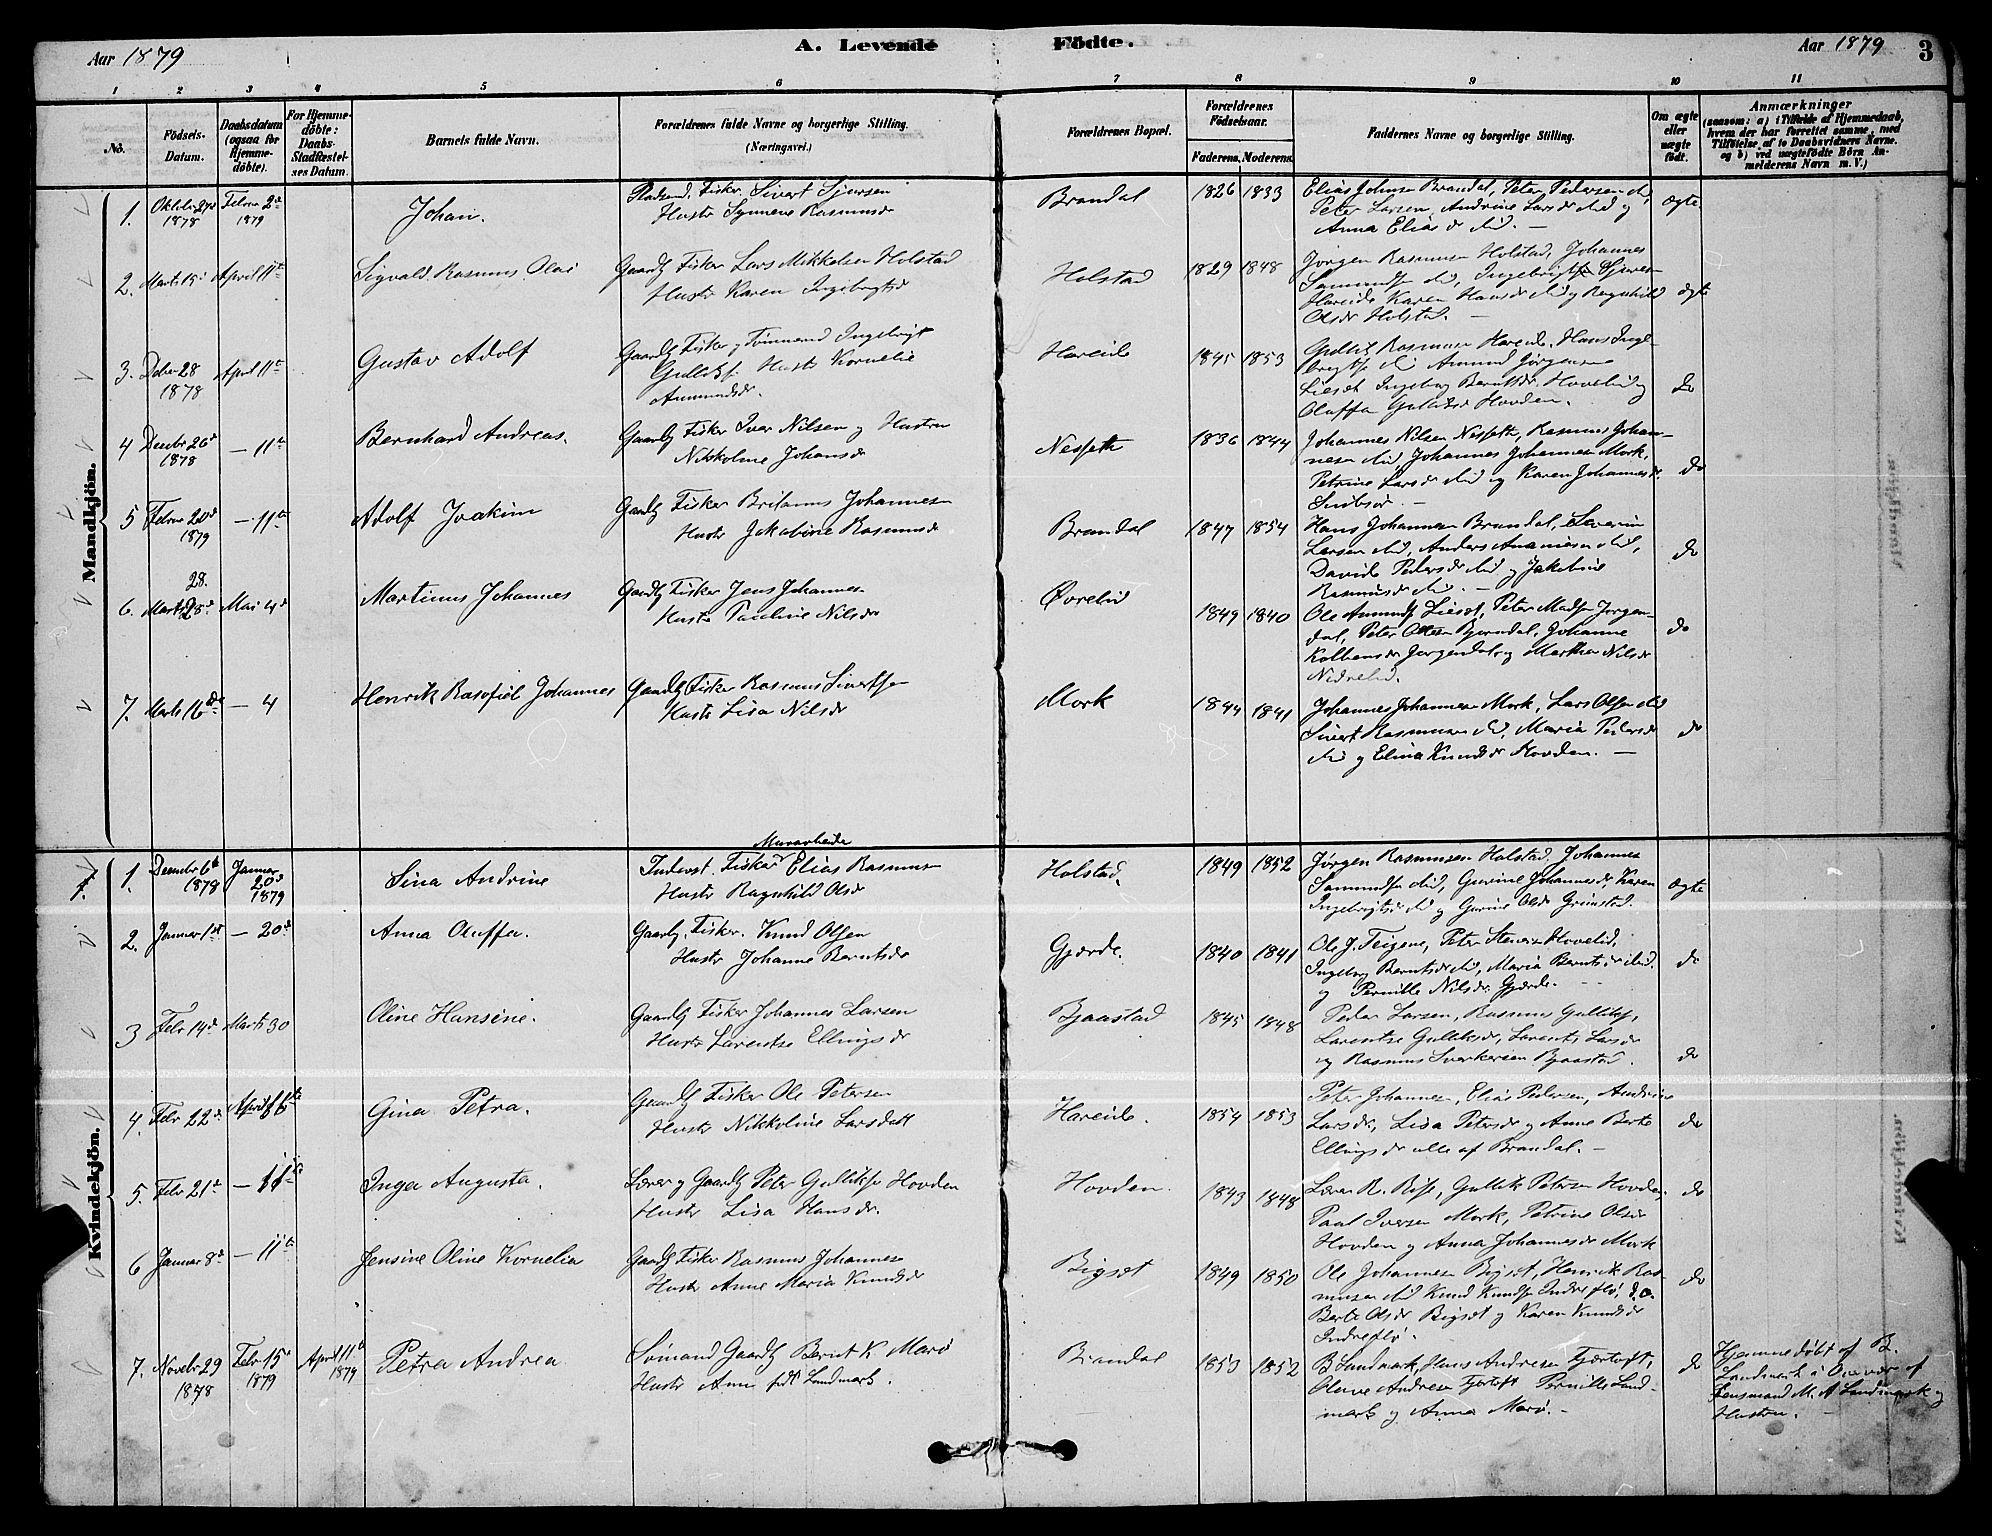 Aar 1879
A. Levende Födte.
Aar 1879
3
1 2 3 4 5 6 7 8 9 10 11
No.
Födsels-Datum.
Daabsdatum (ogsaa for Hjemme-döbte).
For Hjemme-döbte: Daabs-Stadfæstel-ses Datum.
Barnets fulde Navn.
Forældrenes fulde Navne og borgerlige Stilling. (Næringsvei.)
Forældrenes Bopæl.
Forældrenes Födselsaar.
Faderens. Moderens.
Faddernes Navne og borgerlige Stilling.
Om ægte eller uægte födt.
Anmærkninger
(saasom: a) i Tilfælde af Hjemmedaab, hvem der har forrettet samme, med Tilföielse af to Daabsvidners Navne. og b) ved uægtefödte Börn An-melderens Navn m. V.)
Mandkjön.
1. Oktober 27d 1878 Febru 2d 1879 Johan.
Pladsmd. Fisker Sivert Sjursen
Hustr Synneve Rasmusdr
Brandal 1826 1833
Elias Johnsen Brandal, Peter Pedersen ibid,
Peter Larsen, Andrine Larsdr ibid og
Anna Eliasdr ibid. —
ægte.
2. Marts 15d April 11te Sigvald Rasmus Olai
Gaardb Fisker Lars Mikkelsen Holstad
Hustr Karen Ingebrigtsdr
Holstad 1829 1848
Jørgen Rasmussen Holstad, Johannes
Samundsen ibid, Ingebrigt Sjursen
Hareide Karen Hansdr ibid og Ragnhild
Olsdr Holstad. —
ægte
3. Debr 28 1878 April 11te Gustav Adolf
Gaardb Fisker og Tømmermd Ingebrigt
Gulliks. Hustr Kornelie
Ammundsdr.
Hareide 1845 1853
Gullik Rasmussen Hareide, Hans Inge-
brigts ibid Amund Jørgensen
Lieset Ingeborg Berntsdr. Hovelid og
Oluffa Gulliksdr Hovden.
do
4 Decebr 26d 1878 — 11te Bernhard Andreas.
Gaardb Fisker Iver Nilsen og Hustru
Nikkoline Johansdr
Nesseth 1836 1844
Johannes Nilsen Nesseth, Rasmus Johan-
nesen ibid, Johannes Johannesen Mork,
Petrine Larsdr ibid og Karen Johannesdr.
do
5 Febru 20d 1879 — 11te Adolf Joakim
Gaardb Fisker Britanus Johannesen
Hustr Jakobine Rasmusdr
Brandal 1847 1854
Hans Johannesen Brandal, Severin
Larsen ibid, Anders Ananiasen ibid,
Davida Pedersdr ibid og Jakobine
Rasmusdr ibid. —
do
28.
6. Marts 28d Mai 4d Martinus Johannes
Gaardb Fisker Jens Johannesen
Hustr Pauline Nilsdr
Øvrelid 1849 1840
Ole Amunds Lieset, Peter Madsen Jørgen-
dal, Peter Olsen Bjørndal, Johanne
Kolbensdr Jørgendal og Martha Nilsdr
Nedrelid.
do
7. Marts 16de — 4 Henrik Rasofiel Johannes
Gaardb Fisker Rasmus Sivertsen
Hustr Lisa Nilsdr
Mork 1844 1841
Johannes Johannesen Mork, Lars Olsen ibid
Sivert Rasmussen ibid, Maria Pedersdr
ibid og Elina Knudsdr Hovden. —
do
Kvindekjön.
1. Decembr 6te 1878 Januar 20d 1879 Sina Andrine
Murarbeide
Inderst. Fisker Elias Rasmusen
Hustr Ragnhild Olsdr
Holstad. 1849 1852
Jørgen Rasmussen Holstad, Johannes
Samundsen ibid, Gurine Johannesdr, Karen
Ingebrigtsdr ibid og Gurine Olsdr Grimstad.
ægte
2. Januar 1st — 20de Anna Oluffa.
Gaardb. Fisker. Knud Olsen
Hustr Johanne Berntsdr
Gjerde. 1840 1841
Ole J. Teigene, Peter Stensen Hovelid,
Ingeborg Berntsdr ibid, Maria Berntsdr ibid.
og Pernille Nilsdr Gjerde. —
do
3 Febr 14d Marts 30 Oline Hansine.
Gaardb Fisker Johannes Larsen
Hustr Larentse Ellingsdr
Bjaastad 1845 1848
Peder Larsen, Rasmus Gulliks,
Larentse Gulliksdr, Larents Larsdr
og Rasmus Sverkersen Bjaastad.
do
4. Febr 22d April 6te Gina Petra.
Gaardb Fisker Ole Petersen
Hustr Nikkoline Larsdatt
Hareide. 1854 1853
Peter Johannesen, Elias Pedersen, Andrine
Larsdr., Lisa Petersdr og Anne Berte
Ellingsdr alle af Brandal. —
do
5. Febr 21d — 11te Inga Augusta.
Lærer og Gaardb Peter Gulliksen Hovden
Hustr Lisa Hansdr.
Hovden. 1843 1848
Lærer R. Rise, Gullik Petersen Hovden,
Paul Iversen Mork, Petrine Olsdr
Hovden og Anna Johannesdr Mork
do
6 Januar 8d — 11te Jensine Oline Kornelia
Gaardb Fisker Rasmus Johannes
Hustr Anne Maria Knudsdr
Bigset 1849 1850
Ole Johannesen Bigset, Henrik Ras-
musen ibid Knud Knudsen Indreflø,
Berte Olsdr Bigset og Karen Knudsdr
Indreflø.
do
7. Novebr. 29 1878 Febr 15d 1879 April 11te 1879 Petra Andrea
Sømand Gaardb Bernt K Marø
Hustr Ane født Landmark.
Brandal 1853 1852
B Landmark, Hans Andresen Fjærtoft,
Oluve Andresen Fjærtoft Pernille Land-
mark og Anna Marø. —
do
Hjemmedøbt af B.
Landmark i Overvær af
Lensmand M. A Landmark og
Hustru. —